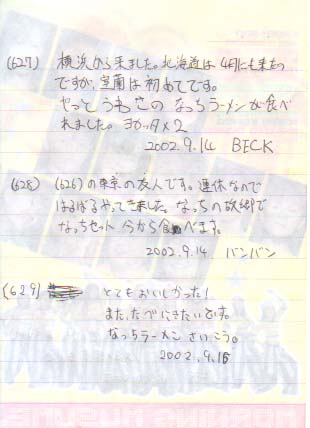 (627) 横浜から来ました。北海道は4月にも来たの
ですが、室蘭は初めてです。
やっと うわさの なっちラーメンが食べ
れました。ヨカッタ×2
2002.9.14 BECK
(628) (626)の東京の友人です。連休なので
はるばるやってきました。なっちの故郷で
なっちセット今から食べます。
2002.9.14 バンバン
(629) とてもおいしかった!
また、たべにきたいです。
なっちラーメン さいこう。
2002.9.15
MORNING MUSUME